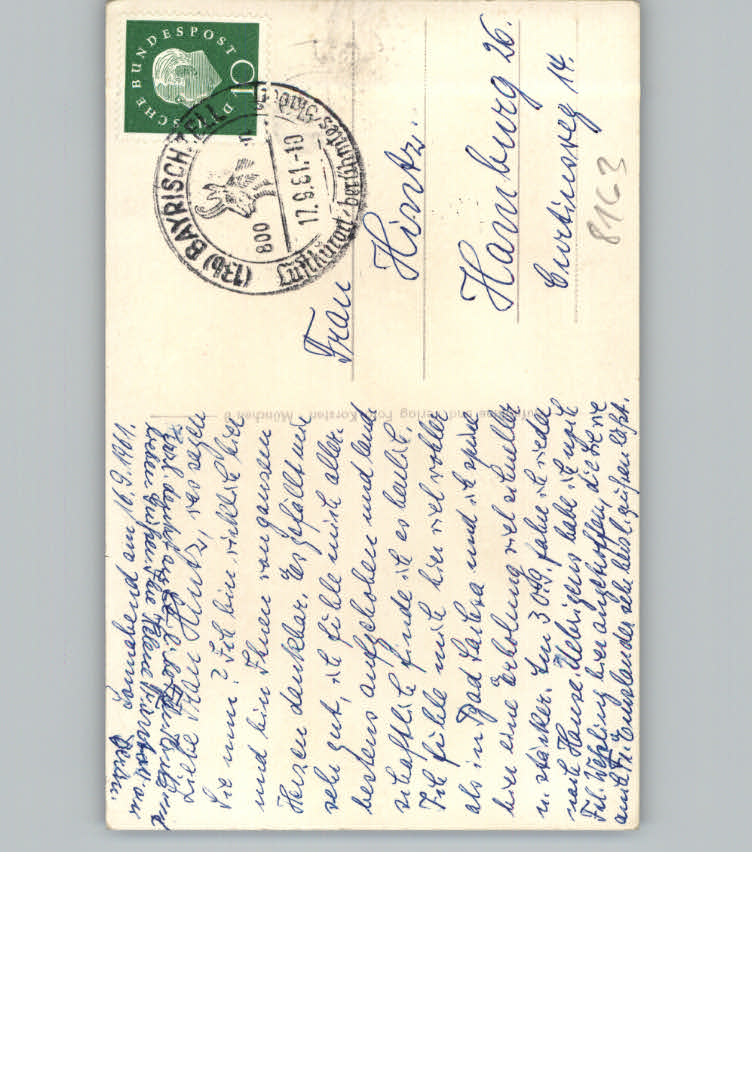 DEUTSCHE BUNDESPOST
10
(13b) BAYRISCHZELL
800
17.9.61.-10
Luftkurort - berühmtes
Frau
Hintz.
Hamburg 26.
Curtiusweg 14.
8163
Aufnahme und Verlag Foto Korsten - München 8
Sonnabend am 16.9.1961.
Liebe Frau Hintz, was sagen
Sie nun? Ich bin wirklich hier
und bin Ihnen von ganzem
Herzen dankbar. Es gefällt mir
sehr gut, ich fühle mich aller-
bestens aufgehoben und land-
schaftlich finde ich es herrlich.
Ich fühle mich hier viel wohler
als in Bad Sachsa und ich spüre
hier eine Erholung viel schneller
u. stärker. Am 3. Okt. fahre ich wieder
nach Hause. Übrigens habe ich
Frl. Wehling hier angetroffen, die Sie wie
auch Fr. sehr herzl. grüßen läßt.